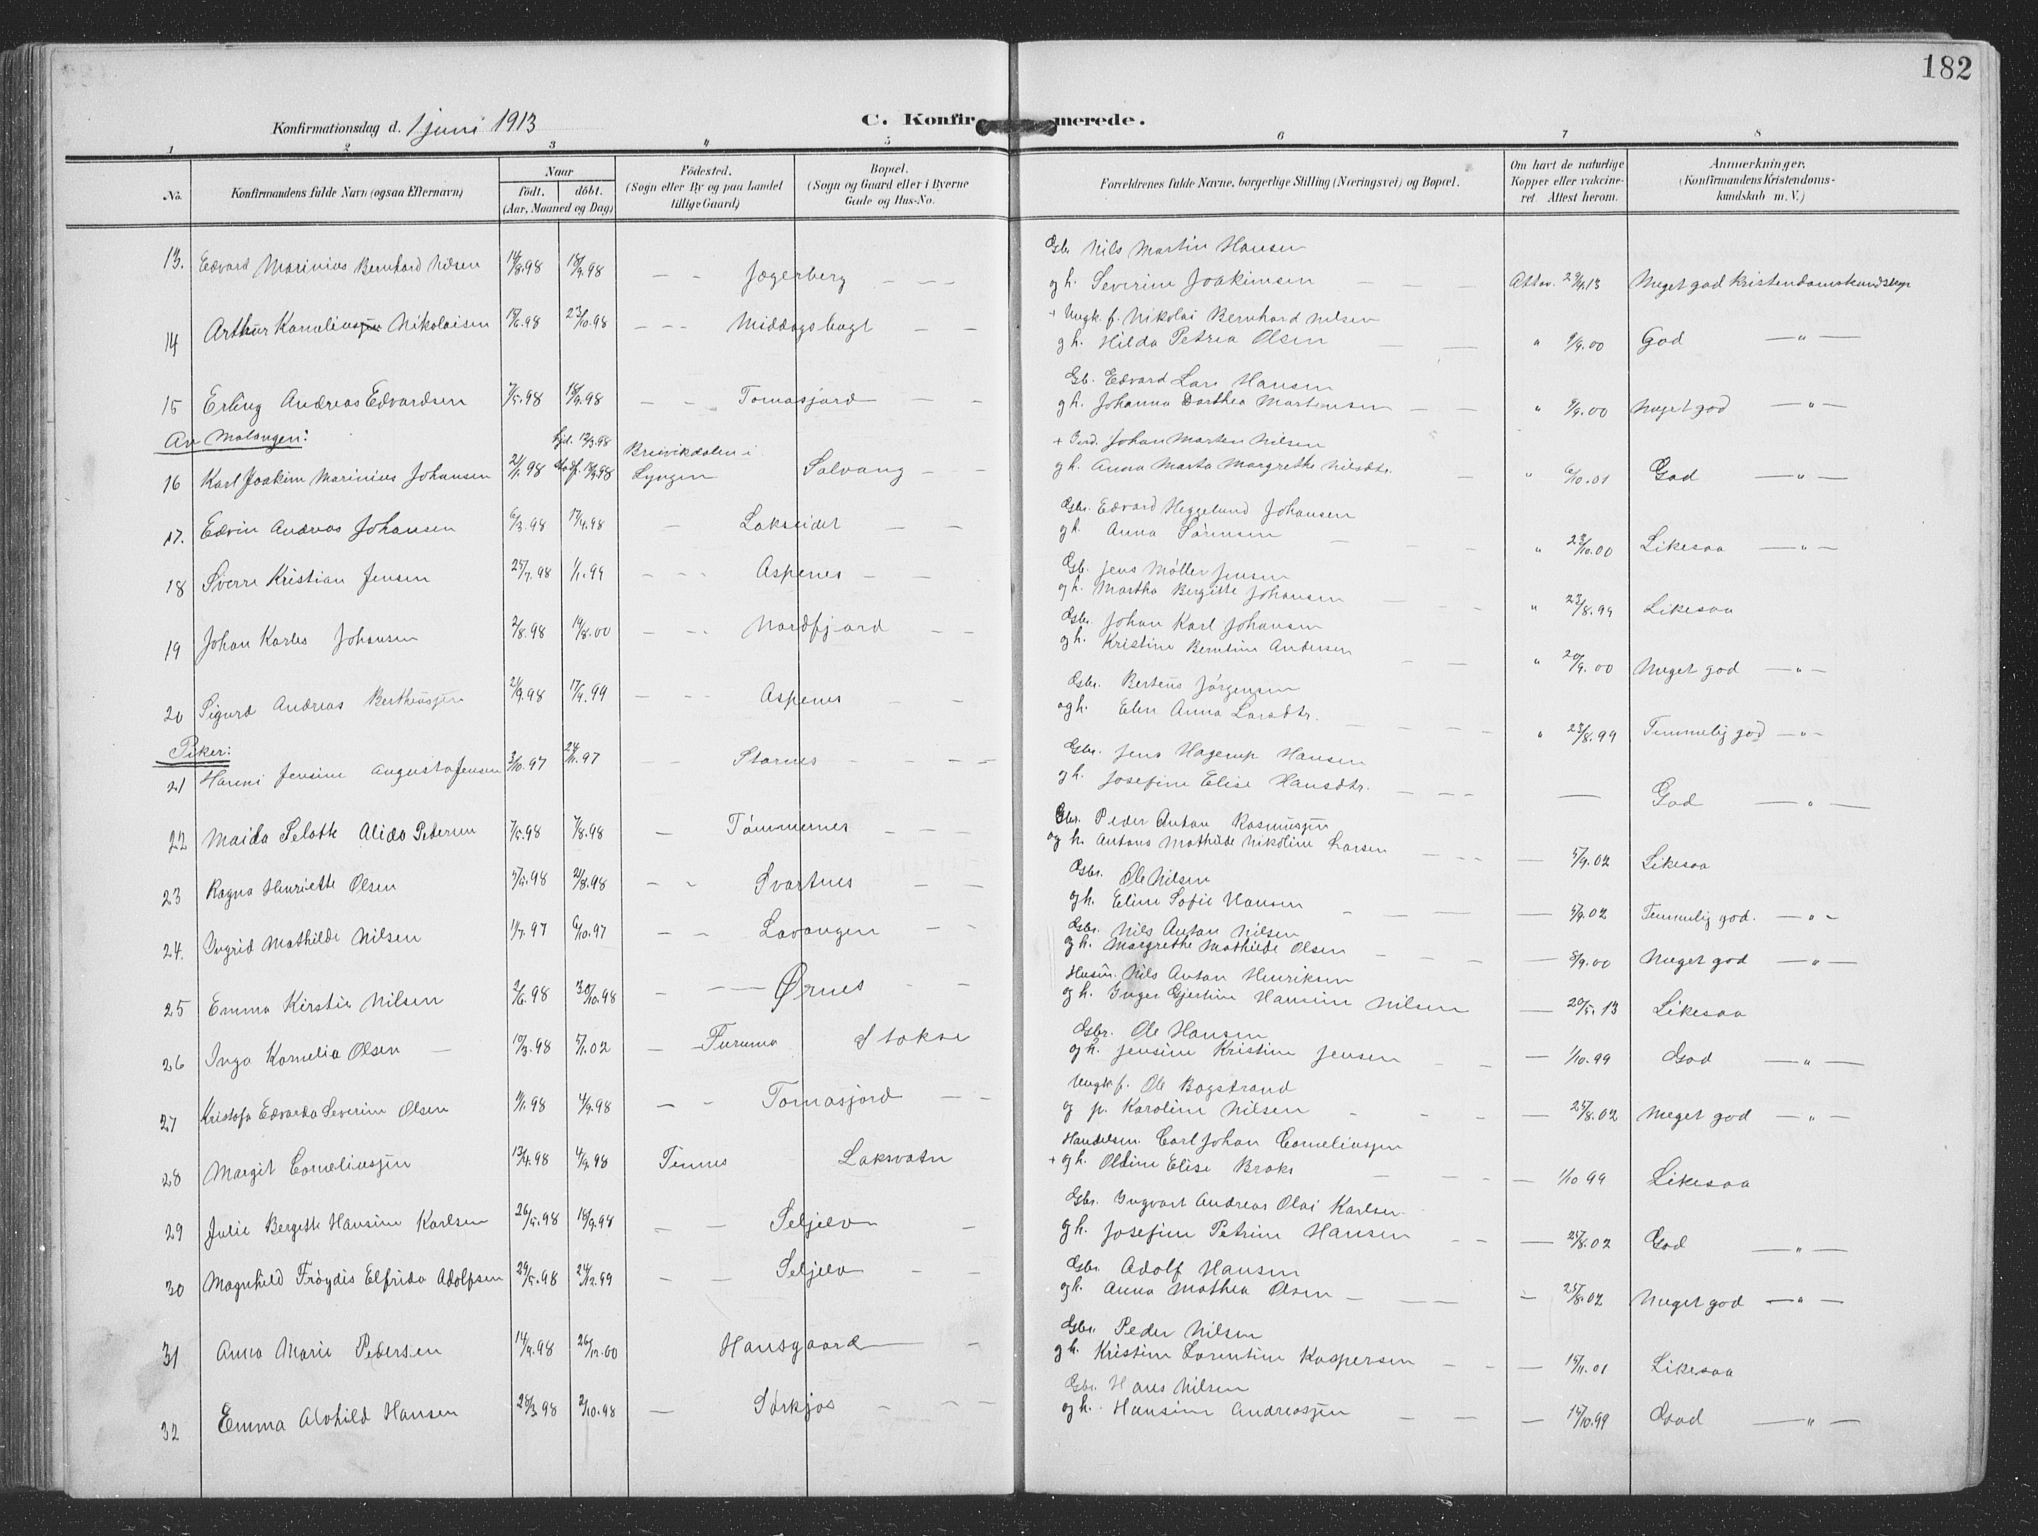 182
Konfirmationsdag d. 1 juni 1913
C. Konfirmerede.
1 2 3 4 5 6 7 8
No.
Konfirmandens fulde Navn (ogsaa Efternavn)
Naar
født. døbt.
(Aar, Maaned og Dag)
Fødested.
(Sogn eller By og paa Landet
tillige Gaard)
Bopæl.
(Sogn og Gaard eller i Byerne
Gade og Hus-No.
Forældrenes fulde Navne, borgerlige Stilling (Næringsvei) og Bopæl.
Om havt de naturlige
Kopper eller vakcine-
ret. Attest herom.
Anmerkninger.
(Konfirmandens Kristendoms-
kundskab m. V.)
Gbr. Nils Martin Hansen
13. Edvard Marinius Bernhard Nilsen 14/8.98 18/9.98 — - Jægerberg - — —
og h. Severine Joakimsen — — — Attov. 29/4.13 Meget god Kristendomskundskap
+ Ungk. f. Nikolai Bernhard Nilsen
14 Arthur Korneliussen Nikolaisen 18/6.98 23/10.98 — - - Middagsbugt — —
og h. Hilda Petrea Olsen — — " 9/9.00 God — " —
Gb. Edvard Lars Hansen
15 Erling Andreas Edvardsen 7/5.98 18/9.98 - - Tomasjord — —
og h. Johanna Dorthea Martensen — — " 9/9.00 Meget god — " —
Av Malangen:
hjd. 12/3.98 Breivikdalen i
+ Johan Marten Nilsen
16 Karl Joakim Marinius Johansen 21/1.98 Lyngen Salvang — —
og h. Anna Marta Margrethe Nilsdtr. — " 6/10.01 God — " —
Gbr. Edvard Heggelund Johansen
17. Edvin Andreas Johansen 6/3.98 17/4.98 — Lakseidet — —
og h. Anna Sørensen — — " 23/10.00 Likesaa — " —
Gb. Jens Møller Jensen
18 Sverre Kristian Jensen 25/7.98 1/1.99 - - Aspenes - — —
og h. Martha Bergitte Johansen — — — " 23/8.99 Likesaa
Gbr. Johan Karl Johansen
19 Johan Karles Johansen 2/8.98 19/8.00 — - - Nordfjord — —
og h. Kristine Berntine Andersen — — " 20/9.00 Meget god — " -
Gbr. Berteus Jørgensen
20 Sigurd Andreas Bertheussen 21/9.98 17/9.99 — - - Aspenes — -
og h. Elen Anna Larsdtr. — — — " 23/8.99 Temmelig god — " -
Piker:
Gbr. Jens Hagerup Hansen
21 Hanni Jensine Augusta Jensen 3/10.97 24/11.97 — - Stornes - — — —
og h. Josefine Elise Hansdtr. — — — — God — " —
Gbr. Peder Antan Rasmussen
22 Maida Selotte Alida Petersen 7/5.98 7/8.98 — Tømmernes — —
og h. Antona Mathilde Nikoline Larsen — - - — 5/9.02 Likesaa
Gbr. Ole Nilsen
23 Ragna Henriette Olsen 5/5.98 21/8.98 — - Svartnes — —
og h. Eline Sofie Hansen - — — — 5/9.02 Temmelig god. — " -
Gbr. Nils Antan Nilsen
24. Ingrid Mathilde Nilsen 1/7.97 6/10.97 — - Lavangen — —
og h. Margrethe Mathilde Olsen - - — — 8/9.00 Meget god — " —
Husm. Nils Antan Henriksen
25 Emma Kirstin Nilsen 2/6.98 30/10.98 — — — Ørnes - -
og h. Inger Gjertine Hansine Nilsen — 20/5.13 Likesaa
Gbr. Ole Hansen
26 Inga Kornelia Olsen — 10/3.98 5/1.02 — Furumo Stakse
og h. Jensine Kristine Jensen — - — — 1/10.99 God — " —
Ungk f. Ole Bagstrand
27 Kristofa Edvarda Severine Olsen 11/1.98 4/9.98 — - Tomasjord — —
og p. Karoline Nilsen - - - — 25/8.02 Meget god — " -
Handelsm. Carl Johan Corneliussen
28 Margit Corneliussen 13/4.98 4/9.98 Tennes Laksvatn
+ og h. Oldine Elise Braks — — - — 1/10 99 Likesaa
Gbr. Ingvart Andreas Olai Karlsen
29 Julie Bergette Hansine Karlsen 26/5.98 18/9.98 — — Seljelv —
og h. Josefine Petrine Hansen — — — 25/8.02 God — " —
Gbr. Adolf Hansen
30 Magnhild Frøydis Elfrida Adolfsen 29/5.98 24/12.99 - — Seljelv -
og h. Anna Mathea Olsen — — — — 25/8.02 Meget god — " —
Gbr. Peder Nilsen
31 Anna Marie Pedersen 14/9.98 26/12.00 Hansgaard — -
og h. Kristine Lorentine Kaspersen - - - — 15/11.01 Likesaa
Gbr. Hans Nilsen
32 Emma Alvhild Hansen 25/3.98 2/10.98 — Sørkjos - — —
og h. Hansine Andreassen — — - — 15/10.99 God — " —